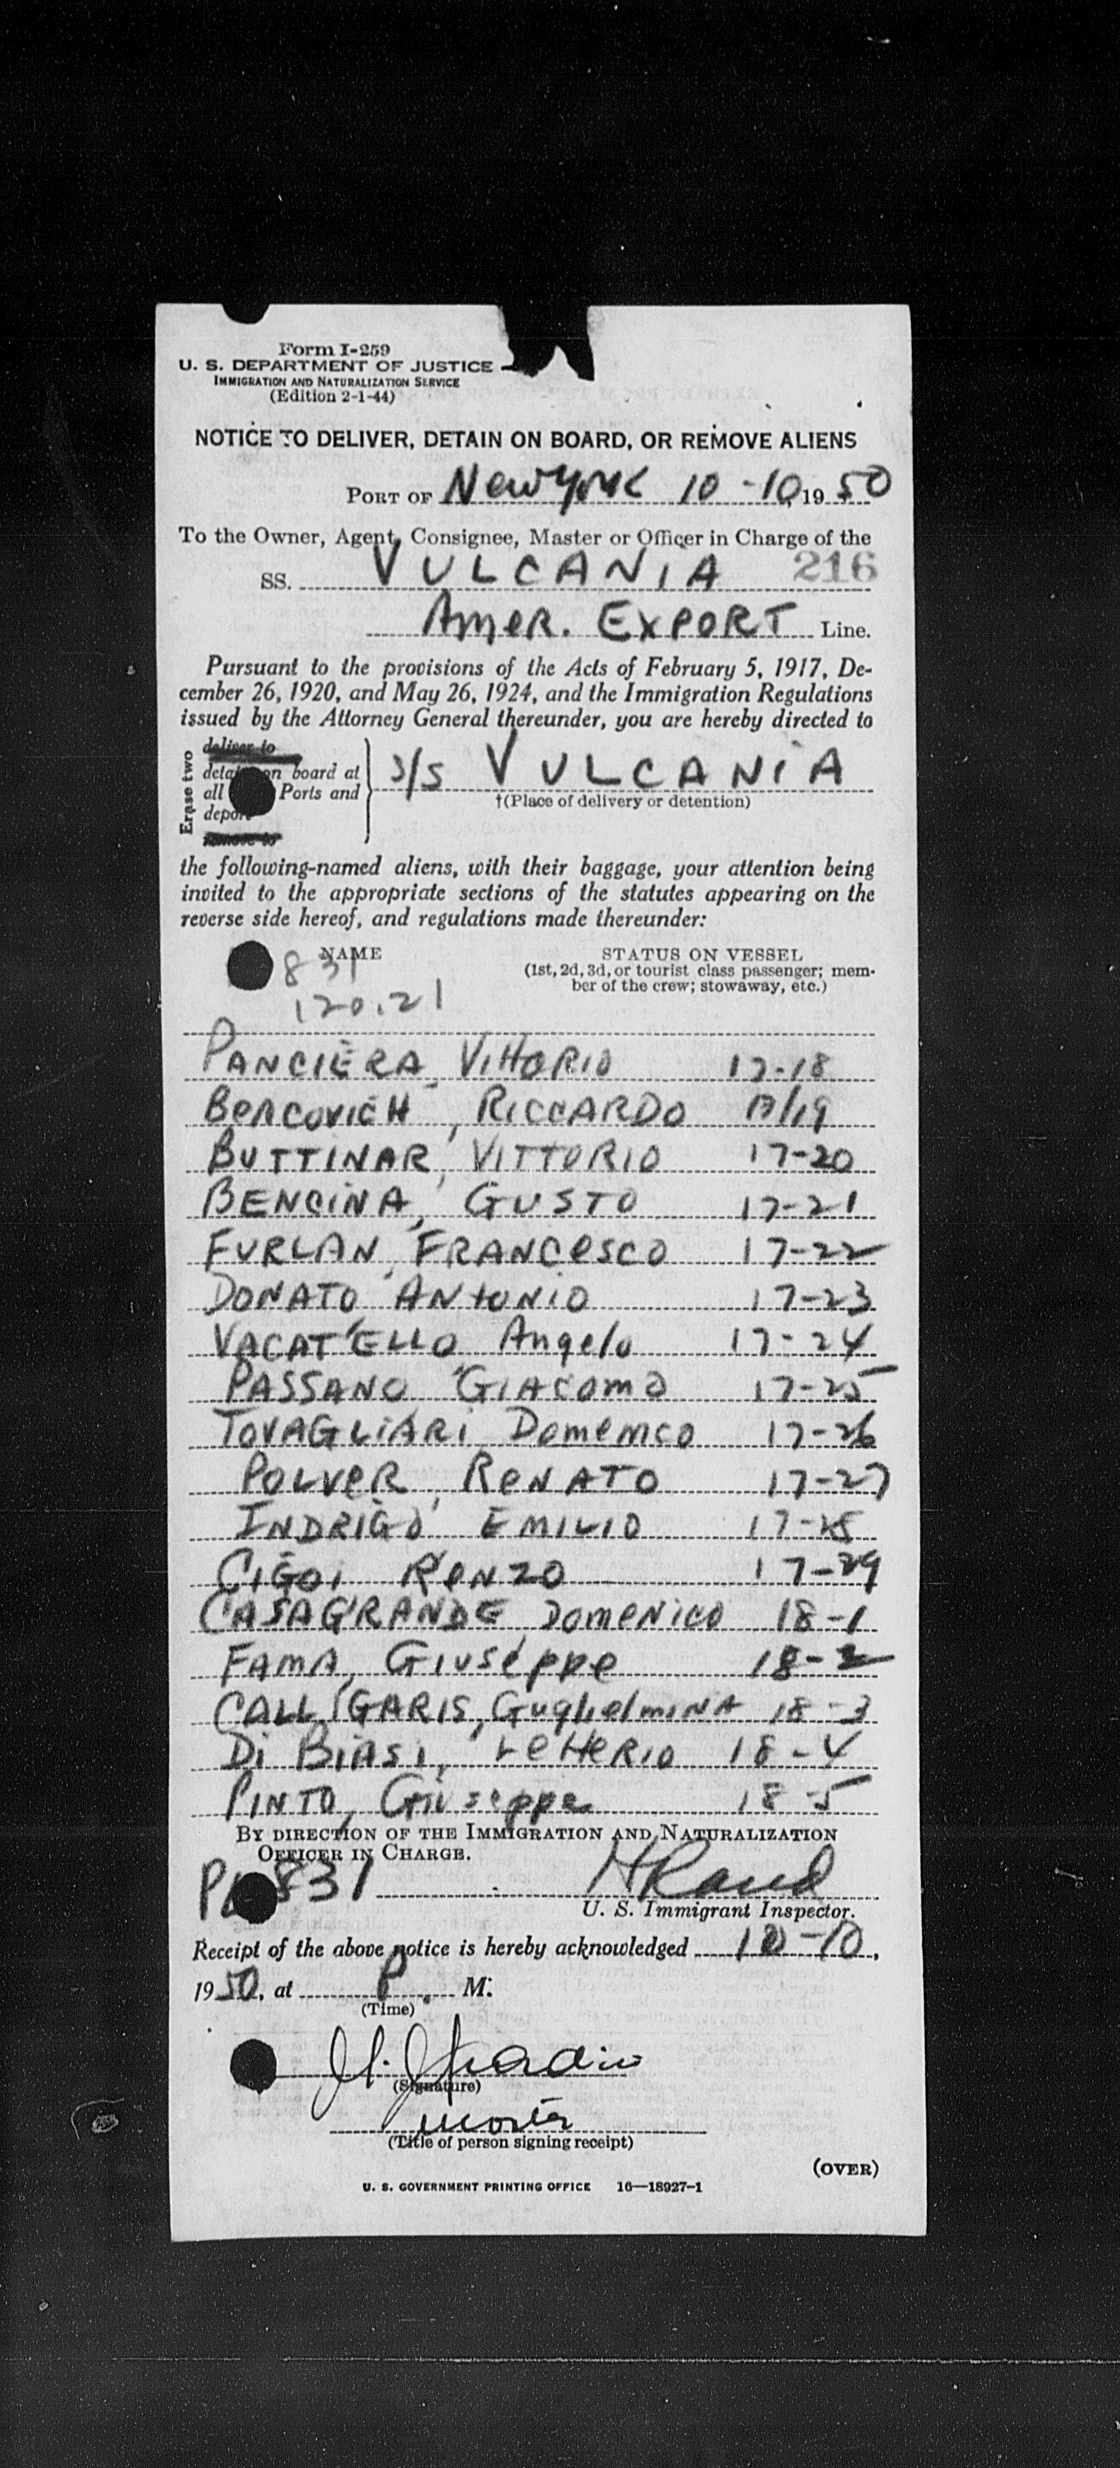 Form I-259
U. S. DEPARTMENT OF JUSTICE
IMMIGRATION AND NATURALIZATION SERVICE
(Edition 2-1-44)
NOTICE TO DELIVER, DETAIN ON BOARD, OR REMOVE ALIENS
PORT OF New York 10-10, 19 50
To the Owner, Agent, Consignee, Master or Officer in Charge of the
SS. VULCANIA 216
AMER. EXPORT Line.
Pursuant to the provisions of the Acts of February 5, 1917, De-
cember 26, 1920, and May 26, 1924, and the Immigration Regulations
issued by the Attorney General thereunder, you are hereby directed to
Erase two
deliver to
detain on board at
all Ports and
deport
remove to
S/S VULCANIA
†(Place of delivery or detention)
the following-named aliens, with their baggage, your attention being
invited to the appropriate sections of the statutes appearing on the
reverse side hereof, and regulations made thereunder:
NAME STATUS ON VESSEL
831 (1st, 2d, 3d, or tourist class passenger; mem-
120.21 ber of the crew; stowaway, etc.)
PANCIERA, VITTORIO 17-18
BERCOVICH, RICCARDO 17/19
BUTTINAR, VITTORIO 17-20
BENCINA, GUSTO 17-21
FURLAN, FRANCESCO 17-22
DONATO ANTONIO 17-23
VACATELLO Angelo 17-24
PASSANO GIACOMO 17-25
TOVAGLIARI Domenico 17-26
POLVER, RENATO 17-27
INDRIGO EMILIO 17-28
CIGOI RENZO 17-29
CASAGRANDE DOMENICO 18-1
FAMA, GIUSEPPE 18-2
CALLIGARIS, GuglielmINA 18-3
Di BIASI, LETTERIO 18-4
PINTO, Giuseppe 18-5
BY DIRECTION OF THE IMMIGRATION AND NATURALIZATION
OFFICER IN CHARGE.
831 H Rand
U. S. Immigrant Inspector.
Receipt of the above notice is hereby acknowledged 10-10,
1950, at P. M.
(Time)
(Signature)
(Title of person signing receipt)
(OVER)
U. S. GOVERNMENT PRINTING OFFICE 16—18927-1